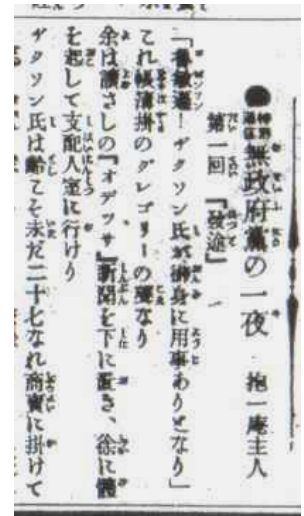 ●無政府黨の一夜　抱一庵主人
第一回　『發途』
！ヂクソン氏が御身に用事ありとなり」
これ帳簿掛のグレゴリーの聲なり
余は讀さしの『オデツサ』新聞を下に置き、徐に體
を起して支配人室に行けり
ヂクソン氏は齡こそ未だ二十七なれ商賣に掛けて